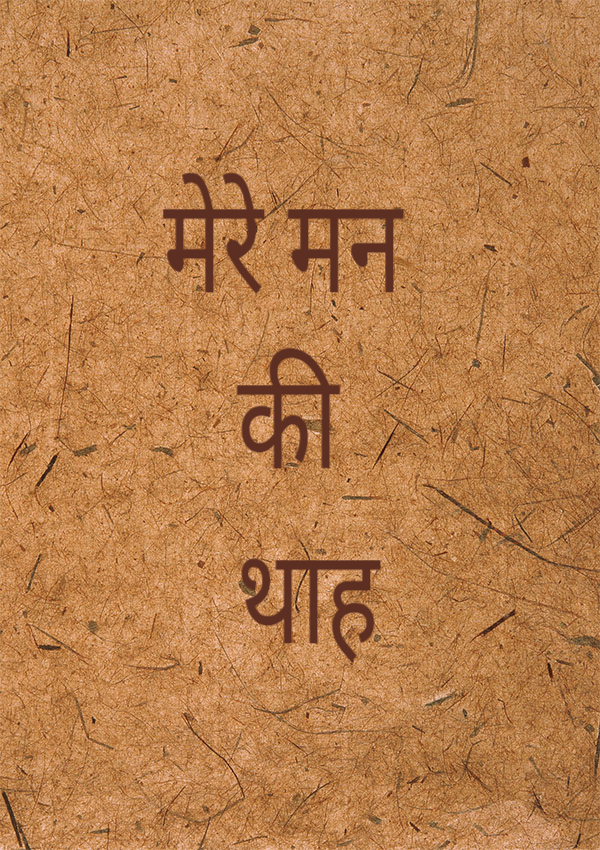 मेरे मन
की
थाह